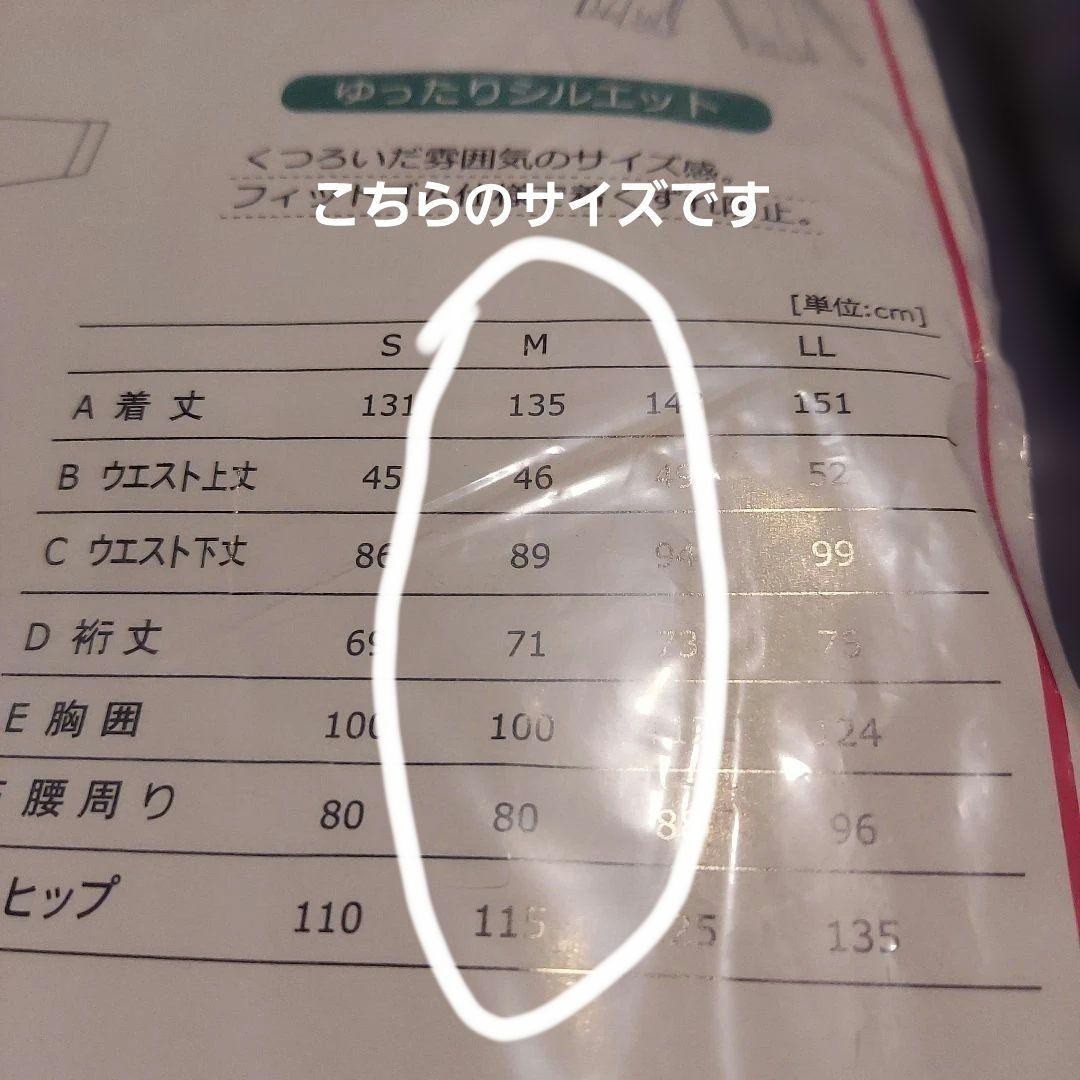 ゆったりシルエット
くつろいだ雰囲気のサイズ感。
こちらのサイズです
[単位:cm]
S M LL
A 着丈 131 135 151
B ウエスト上丈 45 46 49 52
C ウエスト下丈 86 89 94 99
D 裄丈 69 71 73 75
E 胸囲 100 100
腰周り 80 80 96
ヒップ 110 115 135